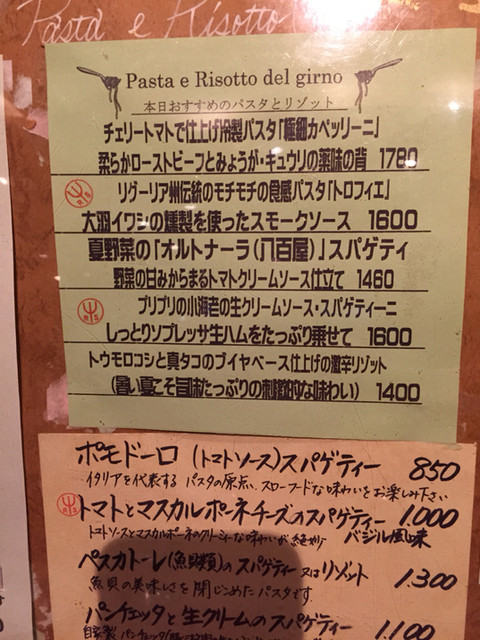 Pasta e Risotto
Pasta e Risotto del girno
本日おすすめのパスタとリゾット
チェリートマトで仕上げ冷製パスタ「極細カペッリーニ」
柔らかローストビーフとみょうが・キュウリの薬味の背 1780
リグーリア州伝統のモチモチの食感パスタ「トロフィエ」
大羽イワシの燻製を使ったスモークソース 1600
夏野菜の「オルトナーラ(八百屋)」スパゲティ
野菜の甘みからまるトマトクリームソース仕立て 1460
プリプリの小海老の生クリームソース・スパゲティーニ
しっとりソプレッサ生ハムをたっぷり乗せて 1600
トウモロコシと真タコのブイヤベース仕上げの激辛リゾット
(暑い夏こそ旨味たっぷりの刺激的な味わい) 1400
ポモドーロ(トマトソース)スパゲティー 850
イタリアを代表する パスタの原点、スローフードな味わいをお楽しみ下さい
トマトとマスカルポーネチーズのスパゲティー 1.000
トマトソースとマスカルポーネのクリーミィな味わいが絶妙 バジル風味
ペスカトーレ(魚貝類)のスパゲティー又はリゾット 1.300
魚貝の美味しさを閉じこめたパスタです
パンチェッタと生クリームのスパゲティー 1.100
自家製